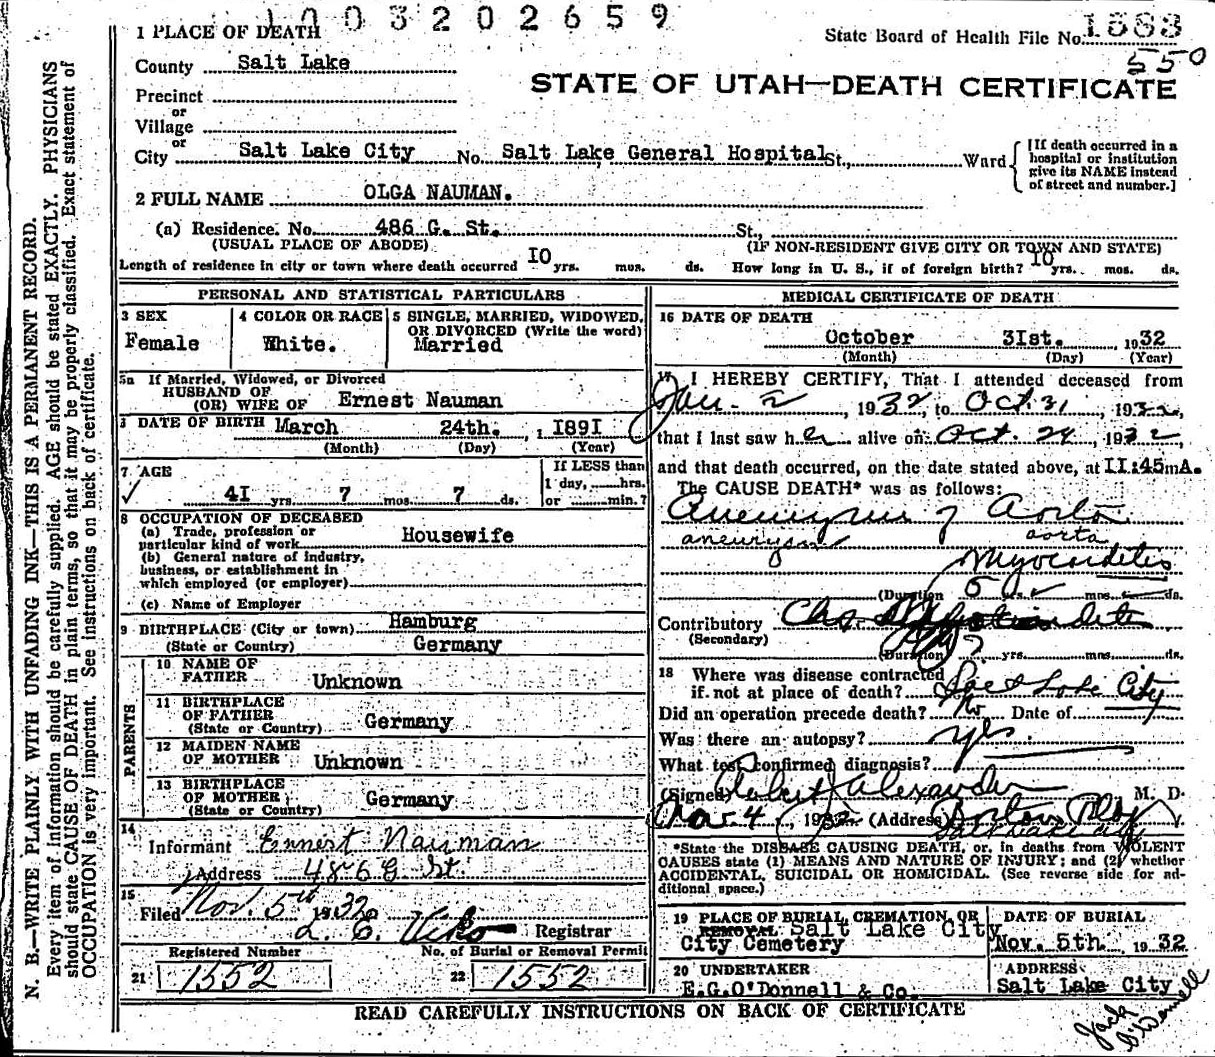 1003202659
1 PLACE OF DEATH
State Board of Health File No. 1683
550
County Salt Lake
STATE OF UTAH—DEATH CERTIFICATE
Precinct
or
Village
or
City Salt Lake City No. Salt Lake General Hospital St., Ward
[If death occurred in a hospital or institution give its NAME instead of street and number.]
2 FULL NAME OLGA NAUMAN.
(a) Residence. No. 486 G. St. St.,
(USUAL PLACE OF ABODE) (IF NON-RESIDENT GIVE CITY OR TOWN AND STATE)
Length of residence in city or town where death occurred IO yrs. mos. ds. How long in U. S., if of foreign birth? IO yrs. mos. ds.
PERSONAL AND STATISTICAL PARTICULARS
3 SEX
Female
4 COLOR OR RACE
White.
5 SINGLE, MARRIED, WIDOWED, OR DIVORCED (Write the word)
Married
5a If Married, Widowed, or Divorced
HUSBAND OF
(OR) WIFE OF Ernest Nauman
DATE OF BIRTH March 24th. , 1 189I
(Month) (Day) (Year)
7 AGE
4I yrs. 7 mos. 7 ds.
If LESS than
1 day, hrs.
or min.?
8 OCCUPATION OF DECEASED
(a) Trade, profession or
particular kind of work Housewife
(b) General nature of industry,
business, or establishment in
which employed (or employer)
(c) Name of Employer
9 BIRTHPLACE (City or town) Hamburg
(State or Country) Germany
PARENTS
10 NAME OF
FATHER Unknown
11 BIRTHPLACE
OF FATHER
(State or Country) Germany
12 MAIDEN NAME
OF MOTHER Unknown
13 BIRTHPLACE
OF MOTHER
(State or Country) Germany
14
Informant Ernest Nauman
Address 486 G St.
15
Filed Nov. 5th 1932
L. E. Registrar
Registered Number
21 1552
No. of Burial or Removal Permit
22 1552
MEDICAL CERTIFICATE OF DEATH
16 DATE OF DEATH
October 3Ist. , 1932
(Month) (Day) (Year)
17 I HEREBY CERTIFY, That I attended deceased from
Jan. 2 , 1932, to Oct. 31 , 1932,
that I last saw her alive on Oct. 24 , 1932,
and that death occurred, on the date stated above, at II:45mA.
The CAUSE DEATH* was as follows:
Aneurysm of Aorta
aneurysm aorta
Myocarditis
(Duration 5 yrs. mos. ds.
Contributory
(Secondary)
(Duration) ? yrs. mos. ds.
18 Where was disease contracted
if not at place of death? Salt Lake City
Did an operation precede death? No Date of
Was there an autopsy? yes
What test confirmed diagnosis?
(Signed) Alexander M. D.
Nov. 4 , 1932 (Address) Boston Bldg
Salt Lake City
*State the DISEASE CAUSING DEATH, or, in deaths from VIOLENT
CAUSES state (1) MEANS AND NATURE OF INJURY; and (2) whether
ACCIDENTAL, SUICIDAL OR HOMICIDAL. (See reverse side for ad-
ditional space.)
19 PLACE OF BURIAL, CREMATION, OR
REMOVAL Salt Lake City
City Cemetery
DATE OF BURIAL
Nov. 5th. 1932
20 UNDERTAKER
E.G.O'Donnell & Co.
ADDRESS
Salt Lake City
Jack O'Donnell
READ CAREFULLY INSTRUCTIONS ON BACK OF CERTIFICATE
N. B.—WRITE PLAINLY WITH UNFADING INK—THIS IS A PERMANENT RECORD.
Every item of information should be carefully supplied. AGE should be stated EXACTLY. PHYSICIANS
should state CAUSE OF DEATH in plain terms, so that it may be properly classified. Exact statement of
OCCUPATION is very important. See instructions on back of certificate.